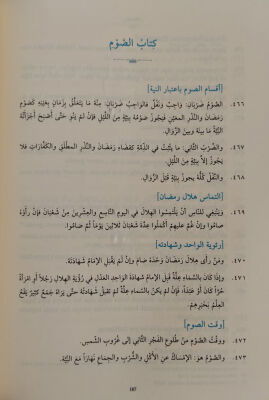 كِتَابُ الصَّوْمِ
[أقسام الصوم باعتبار النية]
٤٦٦. الصَّوْمُ ضَرْبَانِ: وَاجِبٌ وَنَفْلٌ فَالوَاجِبُ ضَرْبَانِ: مِنْهُ مَا يَتَعَلَّقُ بِزَمَانٍ بِعَيْنِهِ كَصَوْمِ
رَمَضَانَ وَالنَّذْرِ المعَيَّنِ فَيَجُوزُ صَوْمُهُ بِنِيَّةٍ مِنَ اللَّيْلِ فَإِنْ لَمْ يَنْوِ حَتَّى أَصْبَحَ أَجْزَأَتْهُ
النِّيَّةُ مَا بَيْنَهُ وَبَيْنَ الزَّوَالِ.
٤٦٧. وَالضَّرْبُ الثَّانِي: مَا يَثْبُتُ فِي الذِّمَّةِ كَقَضَاءِ رَمَضَانَ وَالنَّذْرِ المطْلَقِ وَالكَفَّارَاتِ فَلَا
يَجُوزُ إِلَّا بِنِيَّةٍ مِنَ اللَّيْلِ.
٤٦٨. وَالنَّفْلُ كُلُّهُ يَجُوزُ بِنِيَّةٍ قَبْلَ الزَّوَالِ.
[التماس هلال رمضان]
٤٦٩. وَيَنْبَغِي لِلنَّاسِ أَنْ يَلْتَمِسُوا الهِلَالَ فِي اليَوْمِ التَّاسِعِ وَالعِشْرِينَ مِنْ شَعْبَانَ فَإِنْ رَأَوْهُ
صَامُوا وَإِنْ غُمَّ عَلَيْهِمْ أَكْمَلُوا عِدَّةَ شَعْبَانَ ثَلَاثِينَ يَوْمًا ثُمَّ صَامُوا.
[رؤية الواحد وشهادته]
٤٧٠. وَمَنْ رَأَى هِلَالَ رَمَضَانَ وَحْدَهُ صَامَ وَإِنْ لَمْ يَقْبَلِ الإِمَامُ شَهَادَتَهُ.
٤٧١. وَإِذَا كَانَ بِالسَّمَاءِ عِلَّةٌ قَبِلَ الإِمَامُ شَهَادَةَ الوَاحِدِ العَدْلِ فِي رُؤْيَةِ الهِلَالِ رَجُلًا أَوِ امْرَأَةً
كَانَ أَوْ عَبْدًا، فَإِنْ لَمْ يَكُنْ بِالسَّمَاءِ عِلَّةٌ لَمْ تُقْبَلْ شَهَادَتُهُ حَتَّى يَرَاهُ جَمْعٌ كَثِيرٌ يَقَعُ
العِلْمُ بِخَبَرِهِمْ.
[وقت الصوم]
٤٧٢. وَوَقْتُ الصَّوْمِ مِنْ طُلُوعِ الفَجْرِ الثَّانِي إِلَى غُرُوبِ الشَّمْسِ.
٤٧٣. وَالصَّوْمُ هُوَ: الإِمْسَاكُ عَنِ الأَكْلِ وَالشُّرْبِ وَالجِمَاعِ نَهَارًا مَعَ النِّيَّةِ.